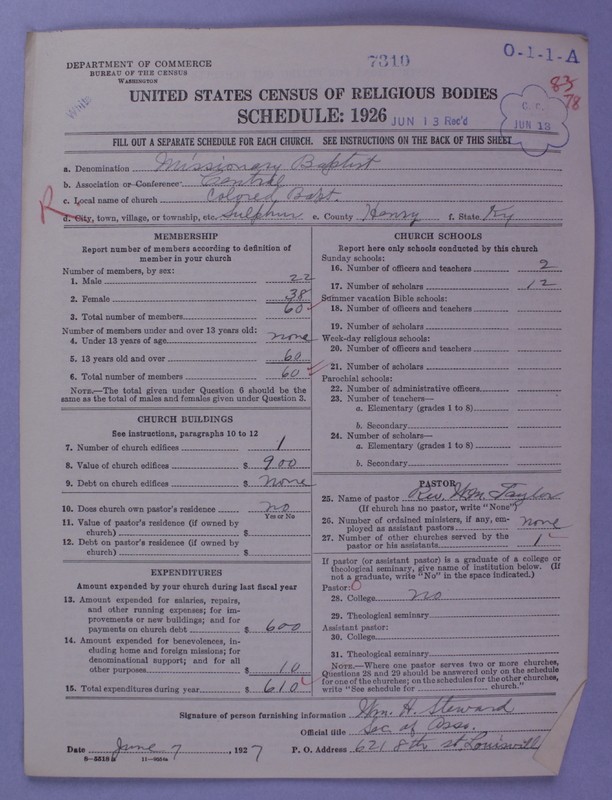 DEPARTMENT OF COMMERCE
BUREAU OF THE CENSUS
WASHINGTON
7310
O-1-1-A
83
78
UNITED STATES CENSUS OF RELIGIOUS BODIES
SCHEDULE: 1926
JUN 13 Rec'd
C. C.
JUN 13
FILL OUT A SEPARATE SCHEDULE FOR EACH CHURCH. SEE INSTRUCTIONS ON THE BACK OF THIS SHEET
a. Denomination Missionary Baptist
b. Association or Conference Central
c. Local name of church Colored Bapt.
R
d. City, town, village, or township, etc. Sulphur e. County Henry f. State Ky
MEMBERSHIP
Report number of members according to definition of
member in your church
Number of members, by sex:
1. Male 22
2. Female 38
3. Total number of members 60
Number of members under and over 13 years old:
4. Under 13 years of age none
5. 13 years old and over 60
6. Total number of members 60
NOTE.—The total given under Question 6 should be the
same as the total of males and females given under Question 3.
CHURCH BUILDINGS
See instructions, paragraphs 10 to 12
7. Number of church edifices 1
8. Value of church edifices $ 900
9. Debt on church edifices $ none
10. Does church own pastor's residence no
Yes or No
11. Value of pastor's residence (if owned by
church) $
12. Debt on pastor's residence (if owned by
church) $
EXPENDITURES
Amount expended by your church during last fiscal year
13. Amount expended for salaries, repairs,
and other running expenses; for im-
provements or new buildings; and for
payments on church debt $ 600
14. Amount expended for benevolences, in-
cluding home and foreign missions; for
denominational support; and for all
other purposes $ 10
15. Total expenditures during year $ 610
CHURCH SCHOOLS
Report here only schools conducted by this church
Sunday schools:
16. Number of officers and teachers 2
17. Number of scholars 12
Summer vacation Bible schools:
18. Number of officers and teachers
19. Number of scholars
Week-day religious schools:
20. Number of officers and teachers
21. Number of scholars
Parochial schools:
22. Number of administrative officers
23. Number of teachers—
a. Elementary (grades 1 to 8)
b. Secondary
24. Number of scholars—
a. Elementary (grades 1 to 8)
b. Secondary
PASTOR
25. Name of pastor Rev. Wm Taylor
(If church has no pastor, write "None")
26. Number of ordained ministers, if any, em-
ployed as assistant pastors none
27. Number of other churches served by the
pastor or his assistants 1
If pastor (or assistant pastor) is a graduate of a college or
theological seminary, give name of institution below. (If
not a graduate, write "No" in the space indicated.)
Pastor: 0
28. College no
29. Theological seminary
Assistant pastor:
30. College
31. Theological seminary
NOTE.—Where one pastor serves two or more churches,
Questions 28 and 29 should be answered only on the schedule
for one of the churches; on the schedules for the other churches,
write "See schedule for church."
Signature of person furnishing information Wm. H. Steward
Official title Sec of Asso.
Date June 7, 1927 P. O. Address 621 8th st, Louisvill
8-5518a 11-9054a